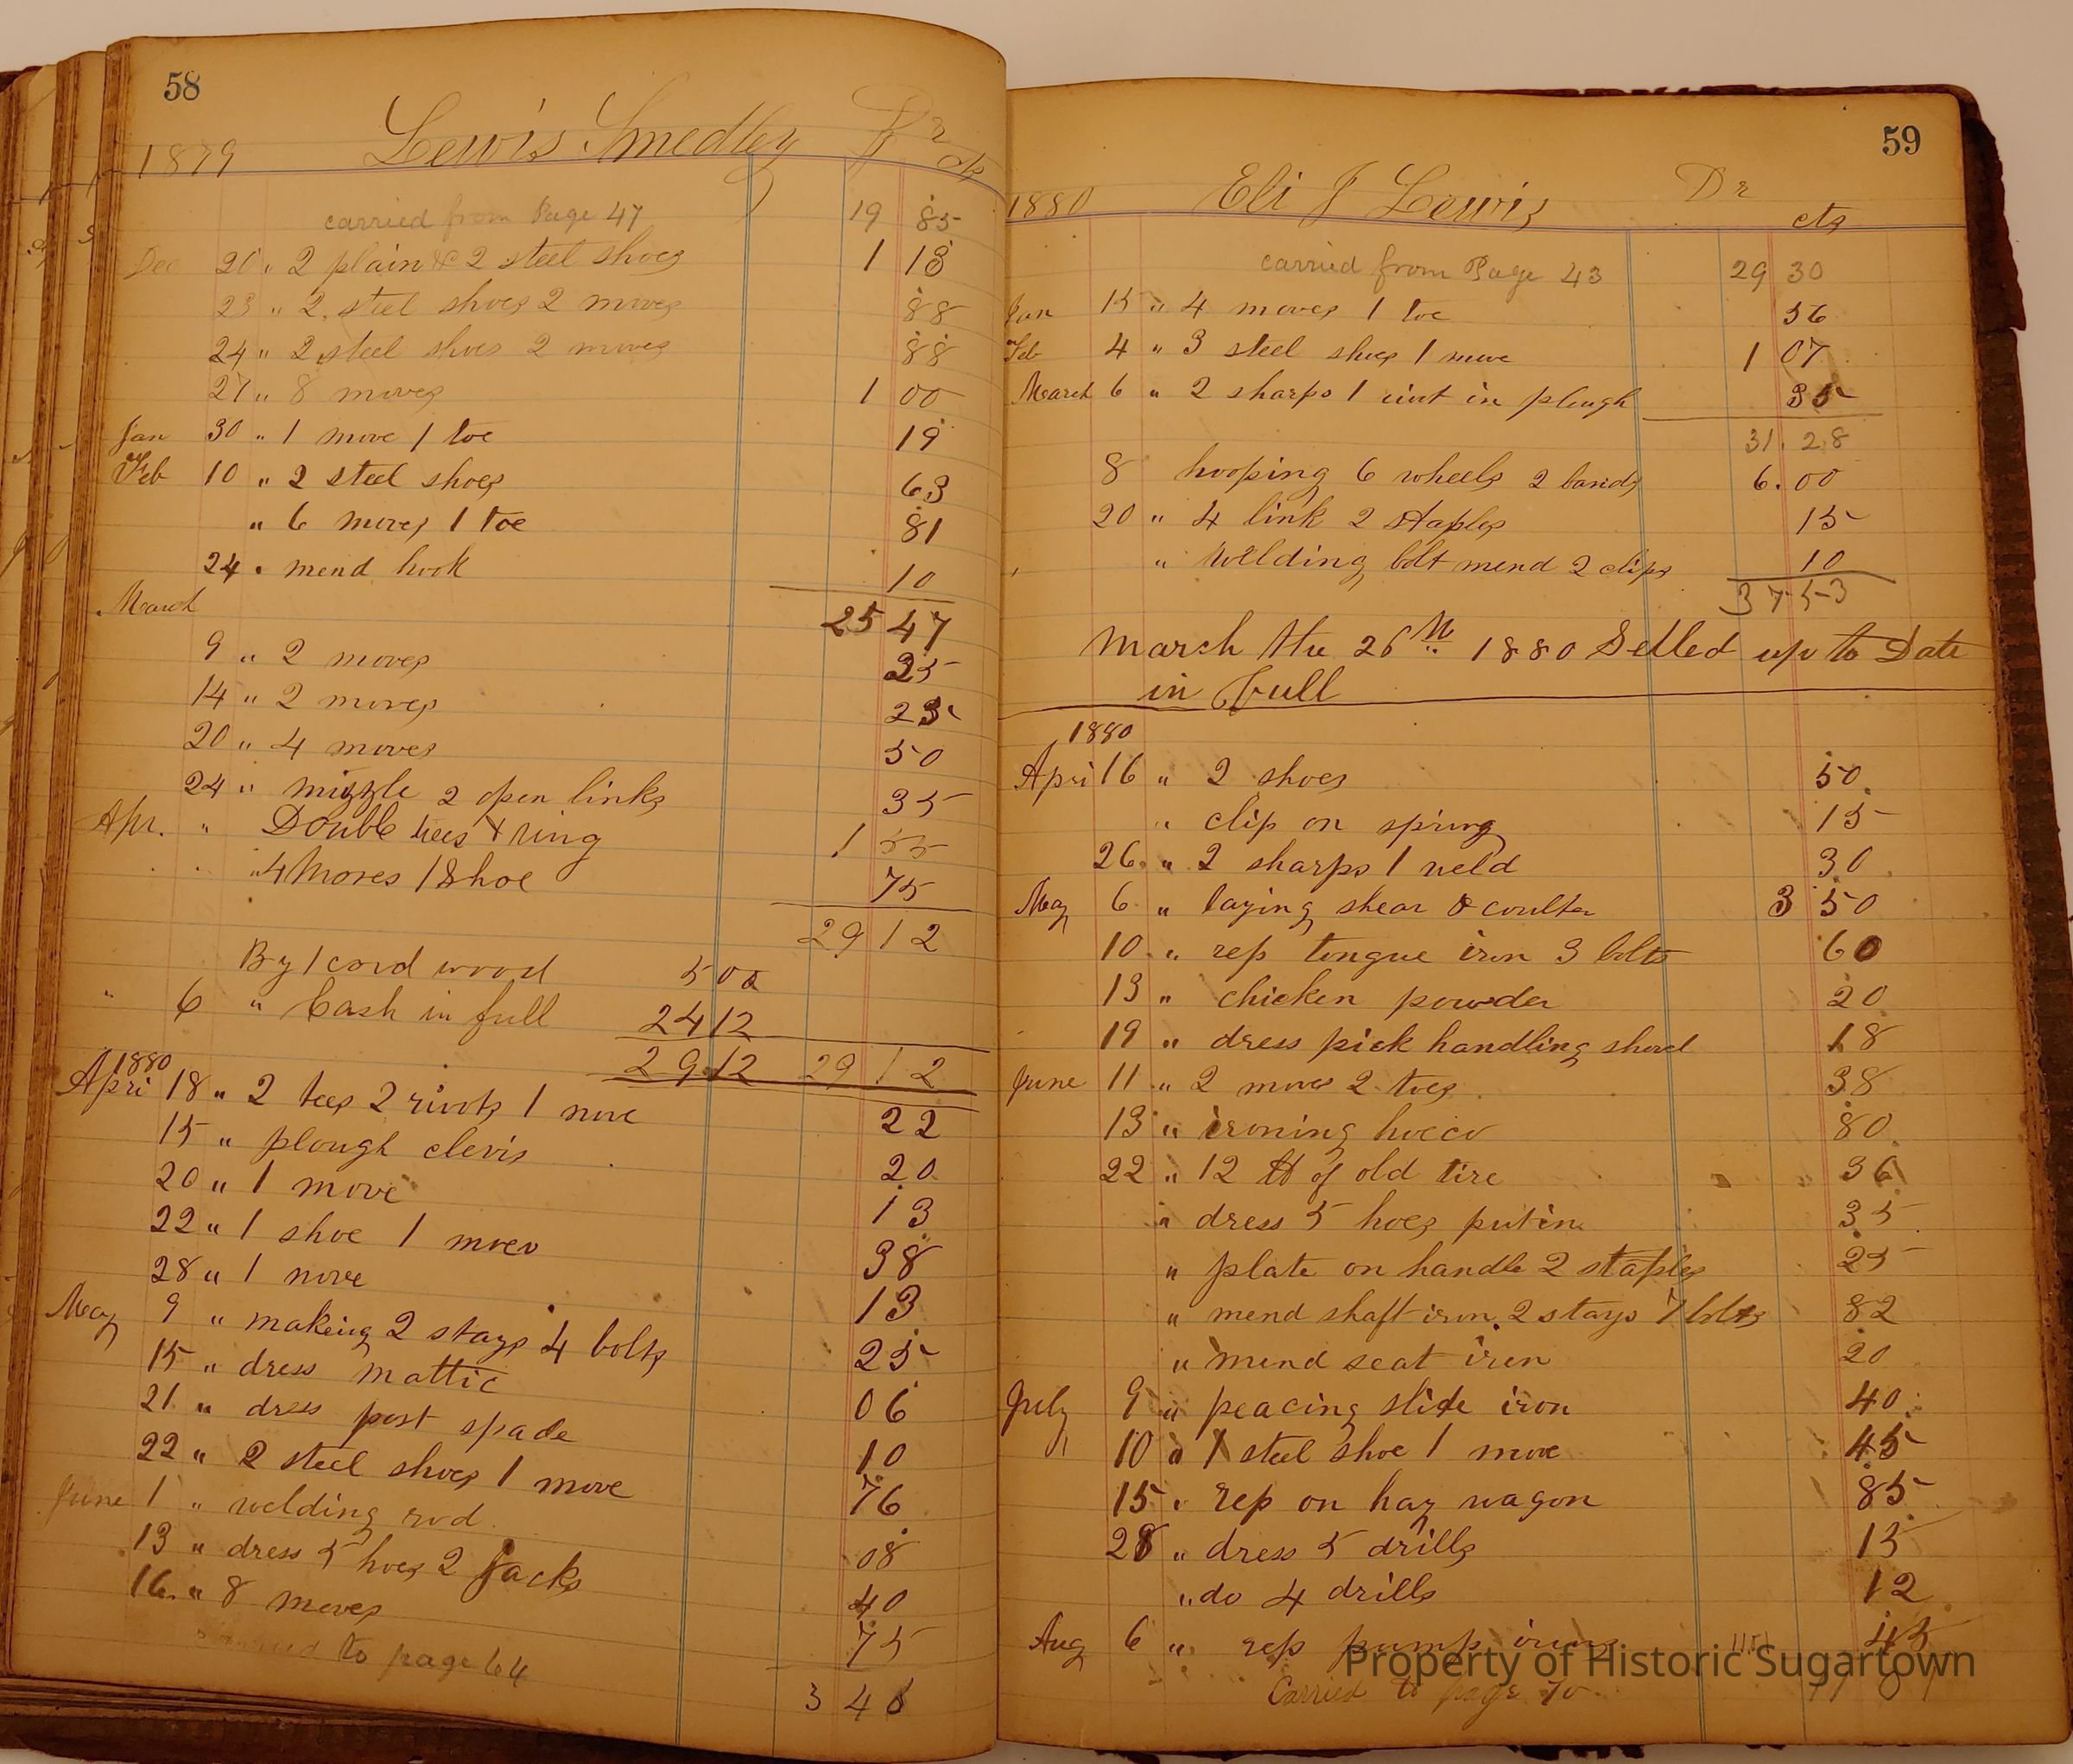 58
Lewis Smedley Dr
1879 cts
carried from Page 47 19 85
Dec 20 " 2 plain & 2 steel shoes 1 18
23 " 2 steel shoes 2 moves 88
24 " 2 steel shoes 2 moves 88
27 " 8 moves 1 00
Jan 30 " 1 move 1 toe 19
Feb 10 " 2 steel shoes 63
" 6 moves 1 toe 81
24 " mend hook 10
March 25 47
9 " 2 moves 25
14 " 2 moves 25
20 " 4 moves 50
24 " mizzle 2 open links 35
Apr. " Double trees & ring 1 55
" 4 Moves 1 Shoe 75
29 12
By 1 cord wood 5 00
" 6 " Cash in full 24 12
29 12 29 12
1880
Apri 18 " 2 tees 2 rivots 1 move 22
15 " plough clevis 20
20 " 1 move 13
22 " 1 shoe 1 moev 38
28 " 1 move 13
May 9 " making 2 stays 4 bolts 25
15 " dress mattic 06
21 " dress post spade 10
22 " 2 steel shoes 1 move 76
June 1 " welding rod 08
13 " dress 5 hoes 2 Jacks 40
16 " 8 moves 75
carried to page 64
3 46
59
1880 Eli J Lewis Dr
cts
carried from Page 43 29 30
Jan 15 " 4 moves 1 toe 56
Feb 4 " 3 steel shoes 1 move 1 07
March 6 " 2 sharps 1 in plough 35
31.28
8 hooping 6 wheels 2 bands 6.00
20 " 4 link 2 staples 15
" Welding bolt mend 2 clips 10
37 53
March the 26th 1880 Setled up to Date
in full
1880
Apri 16 " 2 shoes 50
" clip on spring 15
26 " 2 sharps 1 weld 30
May 6 " laying shear & coulter 3 50
10 " rep tongue iron 3 bolts 60
13 " chicken powder 20
19 " dress pick handling shovel 18
June 11 " 2 moves 2 toes 38
13 " ironing 80
22 " 12 lb of old tire 36
" dress 5 hoes put in 35
" plate on handle 2 staples 25
" mend shaft iron 2 stays 7 bolts 82
" mend seat iron 20
July 9 " peacing slide iron 40
10 " 1 steel shoe 1 move 45
15 " rep on hay wagon 85
28 " dress 5 drills 15
" do 4 drills 12
Aug 6 " rep pump irons 45
Carried to page 70
Property of Historic Sugartown